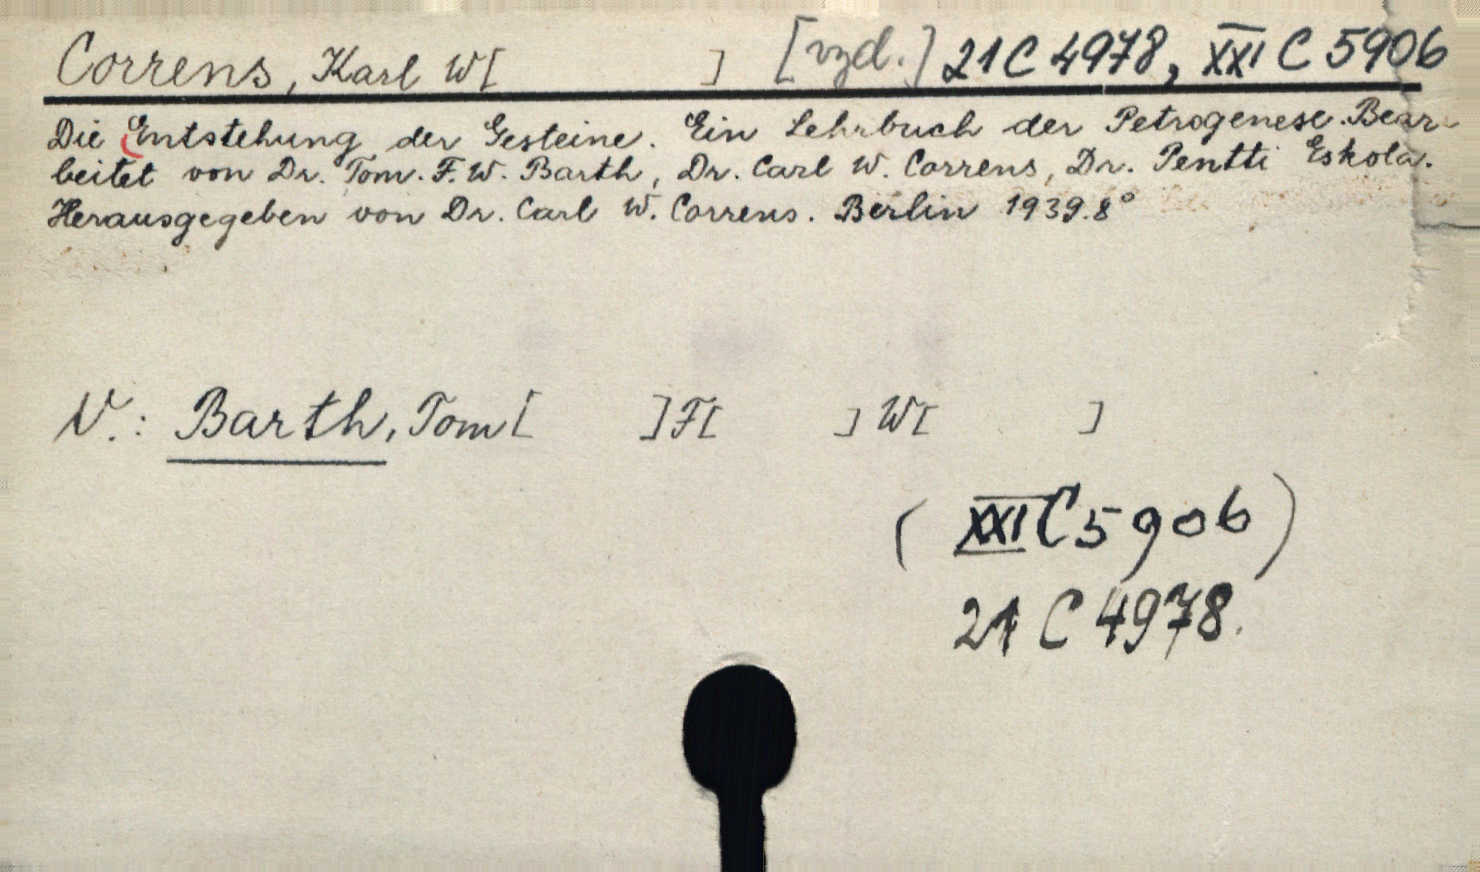 Correns, Karl W[ ] [vyd.] 21 C 4978, XXI C 5906
Die Entstehung der Gesteine. Ein Lehrbuch der Petrogenese. Bear-
beitet von Dr. Tom. F. W. Barth, Dr. Carl W. Correns, Dr. Pentti Eskola.
Herausgegeben von Dr. Carl W. Correns. Berlin 1939. 8°
V.: Barth, Tom[ ] F[ ] W[ ]
( XXI C 5906 )
21 C 4978.